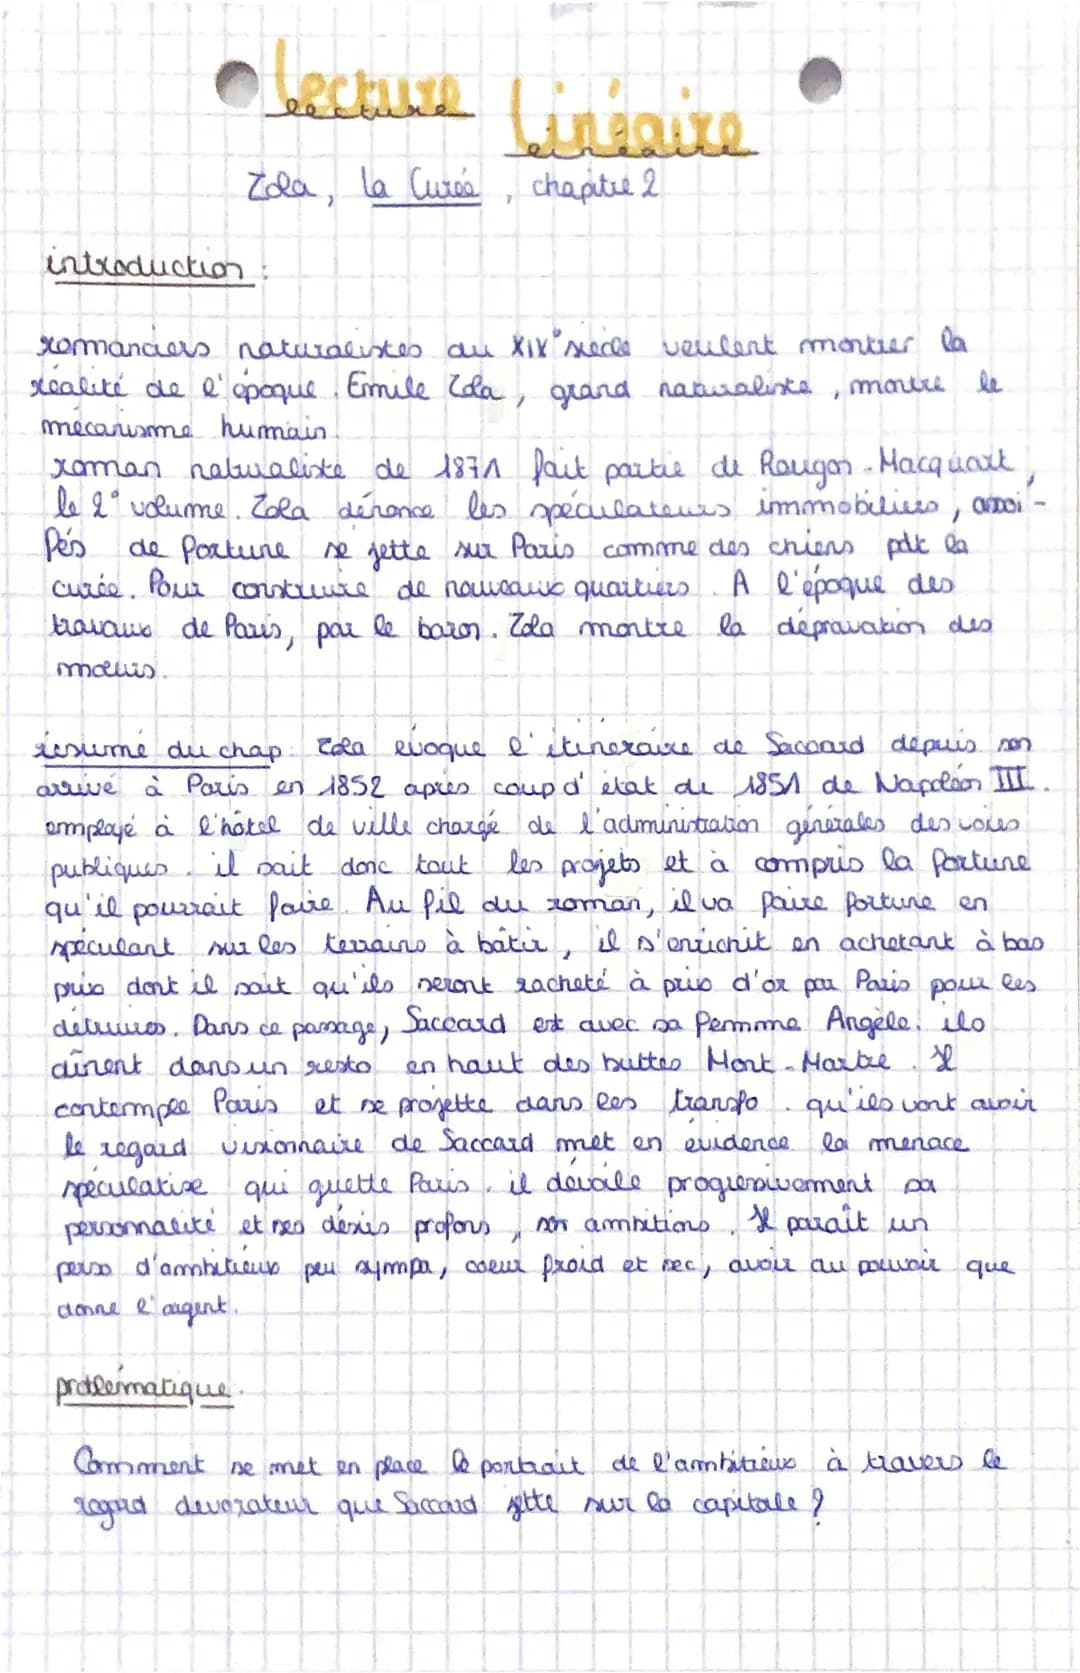 lecture linéaire
lecture linéaire
Zola, la Curée, chapitre 2
introduction :
romanciers naturalistes au XIX° siècle veulent montrer la
réalité de l'époque. Emile Zola, grand naturaliste, montre le
mécanisme humain.
roman naturaliste de 1871 fait partie de Rougon-Macquart,
le 2° volume. Zola dénonce les spéculateurs immobiliers, assoi-
fés de fortune se jette sur Paris comme des chiens pdt la
curée. Pour construire de nouveaux quartiers. A l'époque des
travaux de Paris, par le baron. Zola montre la dépravation des
mœurs.
résumé du chap: Zola évoque l'itineraire de Saccard depuis son
arrivé à Paris en 1852 après coup d'état de 1851 de Napoléon III.
employé à l'hôtel de ville chargé de l'administration générales des voies
publiques. il sait donc tout les projets et à compris la fortune
qu'il pourrait faire. Au fil du roman, il va faire fortune en
spéculant sur les terrains à bâtir, il s'enrichit en achetant à bas
prix dont il sait qu'ils seront racheté à prix d'or par Paris pour les
détruires. Dans ce passage, Saccard est avec sa femme Angèle. ils
dînent dans un resto en haut des buttes Mont-Martre. Il
contemple Paris et se projette dans les transfo. qu'ils vont avoir
le regard visionnaire de Saccard met en évidence la menace
spéculative qui guette Paris. il dévoile progressivement sa
personnalité et ses désirs profons, son ambitions. Il paraît un
perso d'ambitieux peu sympa, coeur froid et sec, avoir au pouvoir que
donne l'argent.
problématique.
Comment se met en place le portrait de l'ambitieux à travers le
regard devorateur que Saccard jette sur la capitale ?